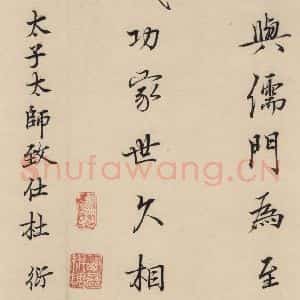 與儒門為至
功家世久相
太子太師致仕杜衍
Shufawang.CN